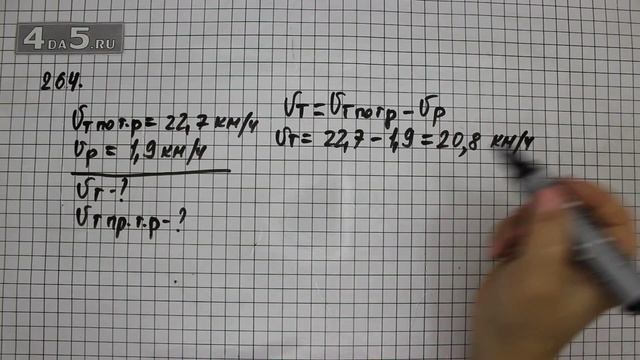 4DA5.RU
264.
υт по т.р = 22,7 км/ч
υр = 1,9 км/ч
υт - ?
υт пр.т.р - ?
υт = υт по т р - υр
υт = 22,7 - 1,9 = 20,8 км/ч